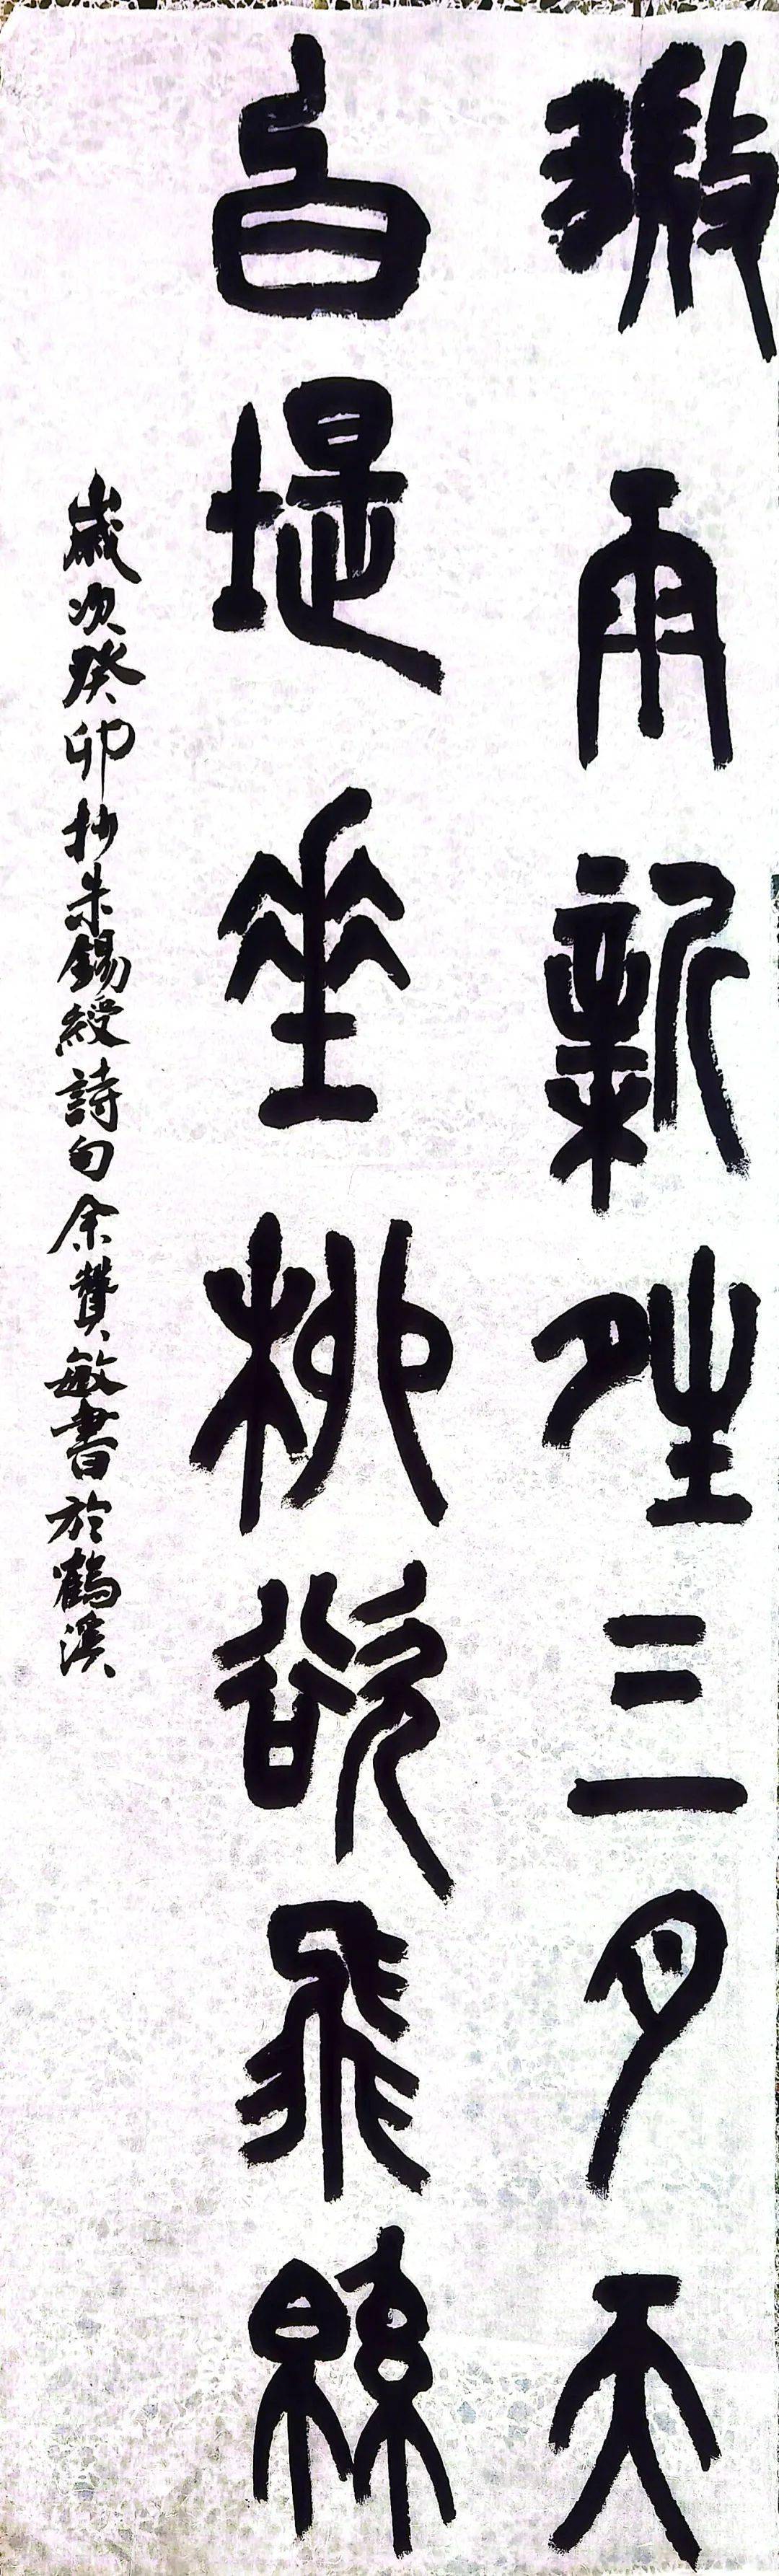 微雨新晴三月天
白堤垂柳欲飛緜
歲次癸卯抄朱錫綬詩句余贊敏書於鶴溪